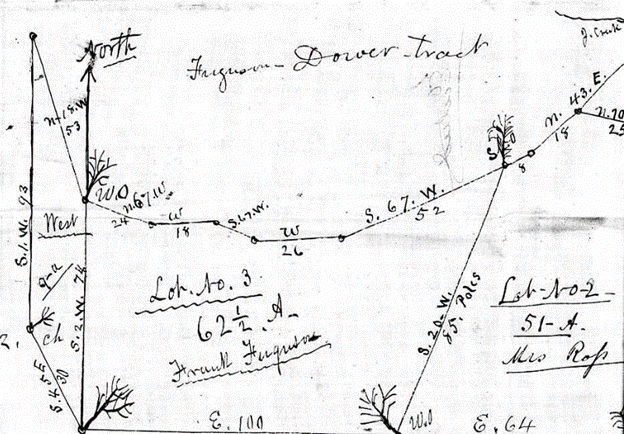 J. Creek
North
Ferguson Dower tract
N. 18. W.
53
N. 43. E.
18
N. 70
25
S. 1. W. 93
W.O
N. 67. W.
24
W
18
S. 67. W.
52
W
26
8
West
S. 2. W. 74
Lot. No. 3.
62 1/2 . A-
Frank Ferguson
S. 20- W.
85. Poles
Lot-No-2-
51- A.
Mrs Ross
2.
ch
S. 45. E
30
E. 100
W.O
E. 64